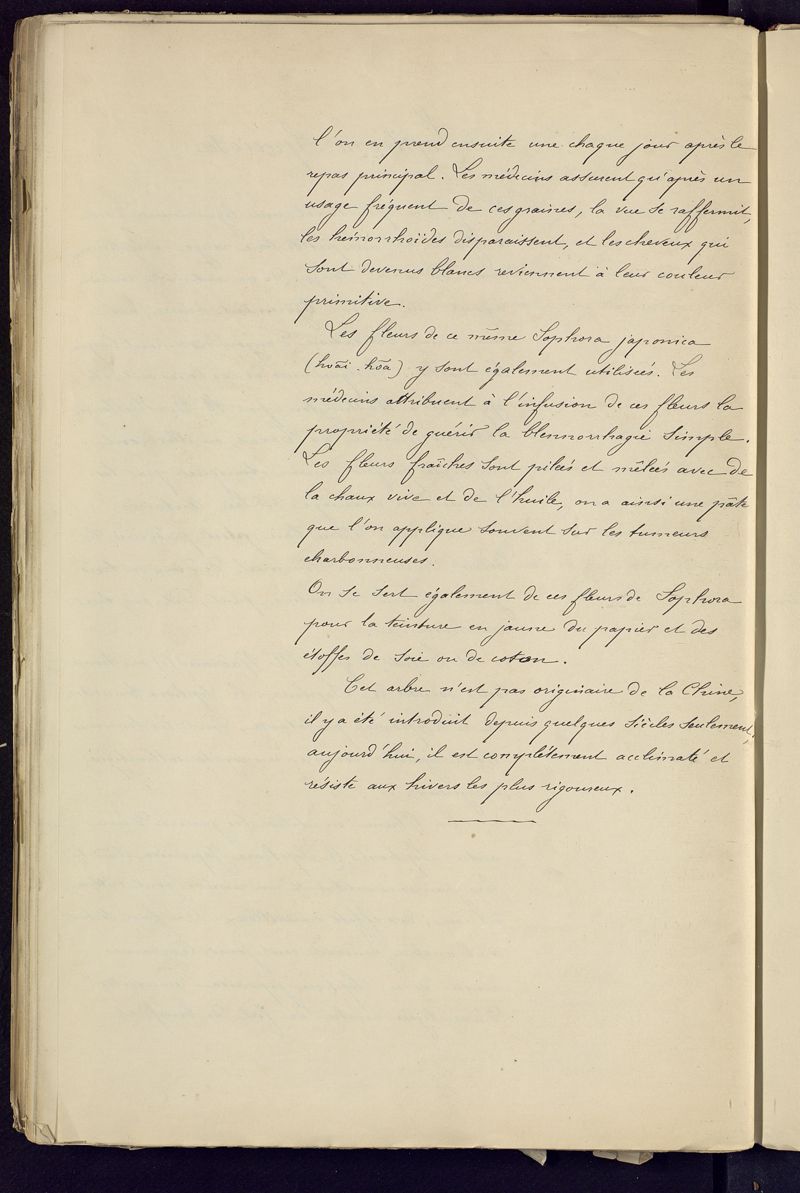 l'on en prend ensuite une chaque jour après le
repas principal. Les médecins assurent qu'après un
usage fréquent de ces graines, la vue se raffermit,
les hémorrhoïdes disparaissent, et les cheveux qui
sont devenus blancs reviennent à leur couleur
primitive.
Les fleurs de ce même Sophora japonica
(hoāi-hōa) y sont également utilisées. Les
médecins attribuent à l'infusion de ces fleurs la
propriété de guérir la blennorrhagie simple.
Les fleurs fraîches sont pilées et mêlées avec de
la chaux vive et de l'huile, on a ainsi une pâte
que l'on applique souvent sur les tumeurs
charbonneuses.
On se sert également de ces fleurs de Sophora
pour la teinture en jaune du papier et des
étoffes de soie ou de coton.
Cet arbre n'est pas originaire de la Chine,
il y a été introduit depuis quelques siècles seulement;
aujourd'hui, il est complétement acclimaté et
résiste aux hivers les plus rigoureux.